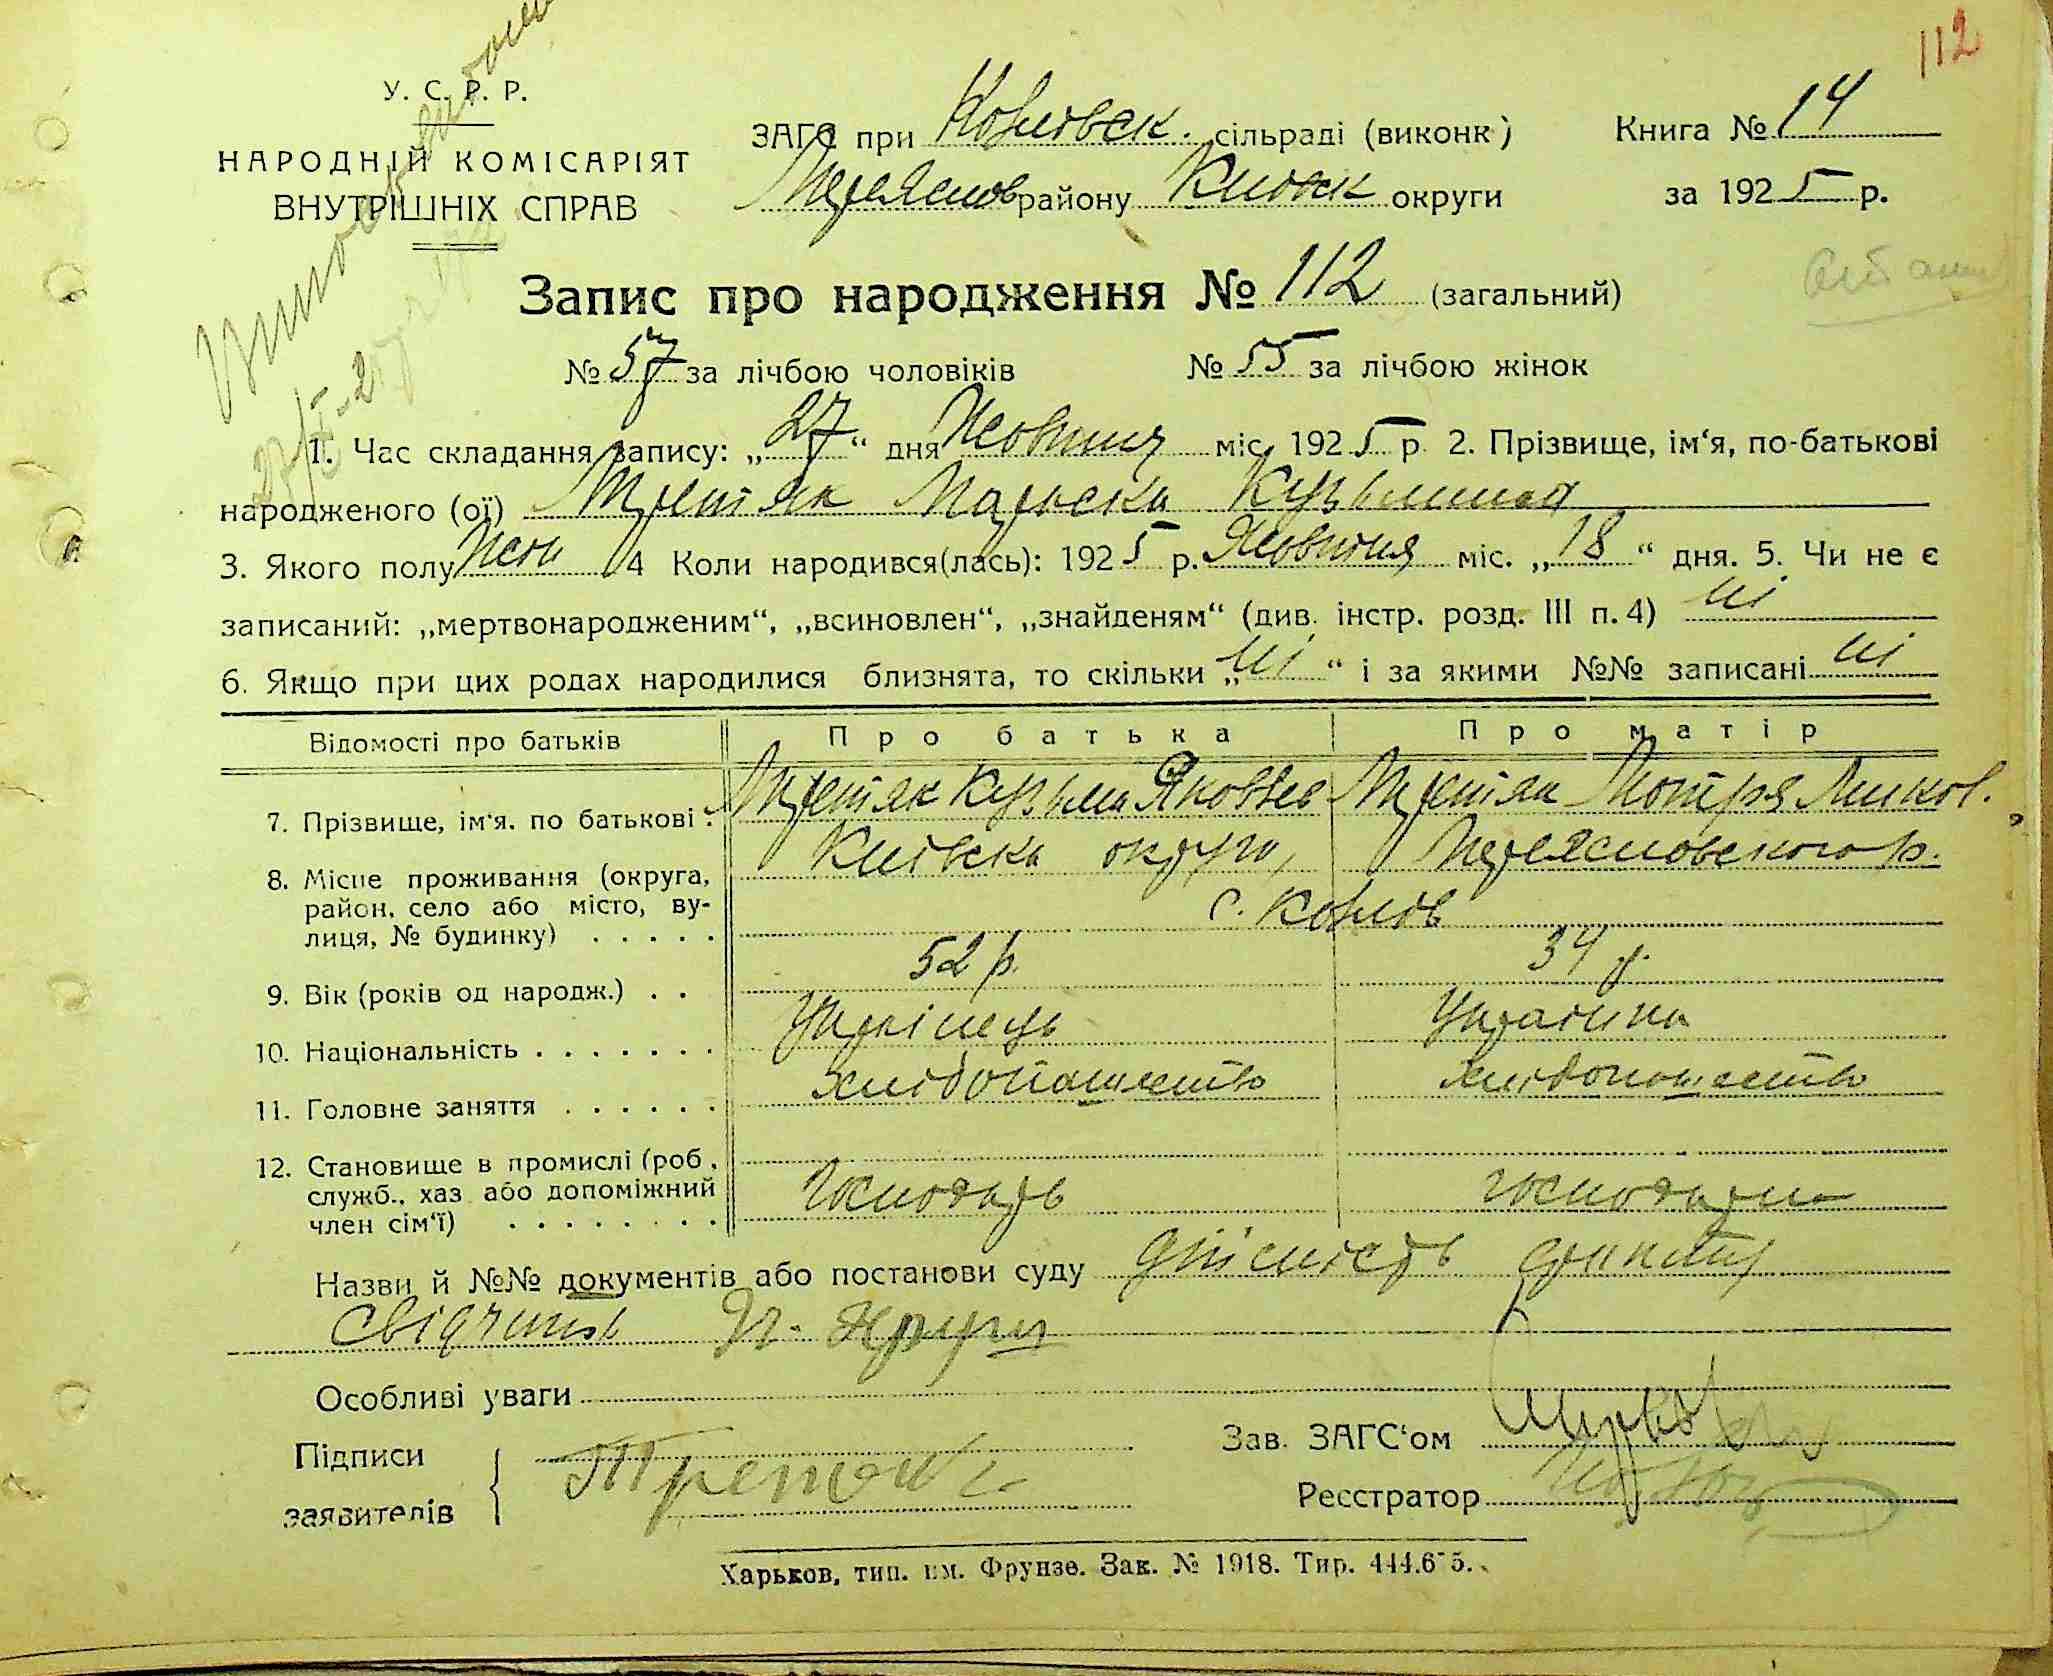 112
У. С. Р. Р.
НАРОДНІЙ КОМІСАРІЯТ
ВНУТРІШНІХ СПРАВ
ЗАГС при Козлівск. сільраді (виконк)
Переяслов району Київск округи
Книга № 14
за 1925 р.
Запис про народження № 112 (загальний)
№ 57 за лічбою чоловіків № 55 за лічбою жінок
1. Час складання запису: „27“ дня Жовтня міс. 1925 р. 2. Прізвище, ім‘я, по-батькові
народженого (ої) Третяк Марьска Кузьмина
3. Якого полу жен 4 Коли народився(лась): 1925 р. Жовтня міс. „18“ дня. 5. Чи не є
записаний: „мертвонародженим“, „всиновлен“, „знайденям“ (див. інстр. розд. III п. 4) ні
6. Якщо при цих родах народилися близнята, то скільки „ні“ і за якими №№ записані ні
Відомості про батьків Про батька Про матір
7. Прізвище, ім‘я. по батькові . Третяк Кузьма Яковлев Третяк Мотря Миков.
8. Місце проживання (округа, Київска округа, Переясловського р.
район, село або місто, ву- с. Козлів
лиця, № будинку) . . . . .
9. Вік (років од народж.) . . 52 р. 34 р.
10. Національність . . . . . . . Украінець Украінка
11. Головне заняття . . . . . . хлібопашество хлібопашество
12. Становище в промислі (роб.,
служб., хаз або допоміжний Господарь господарка
член сім‘ї) . . . . . . . .
Назви й №№ документів або постанови суду дійсність
свідчить
Особливі уваги
Підписи
заявителів
Третяк
Зав. ЗАГС‘ом
Реєстратор
Харьков, тип. им. Фрунзе. Зак. № 1918. Тир. 444.675.